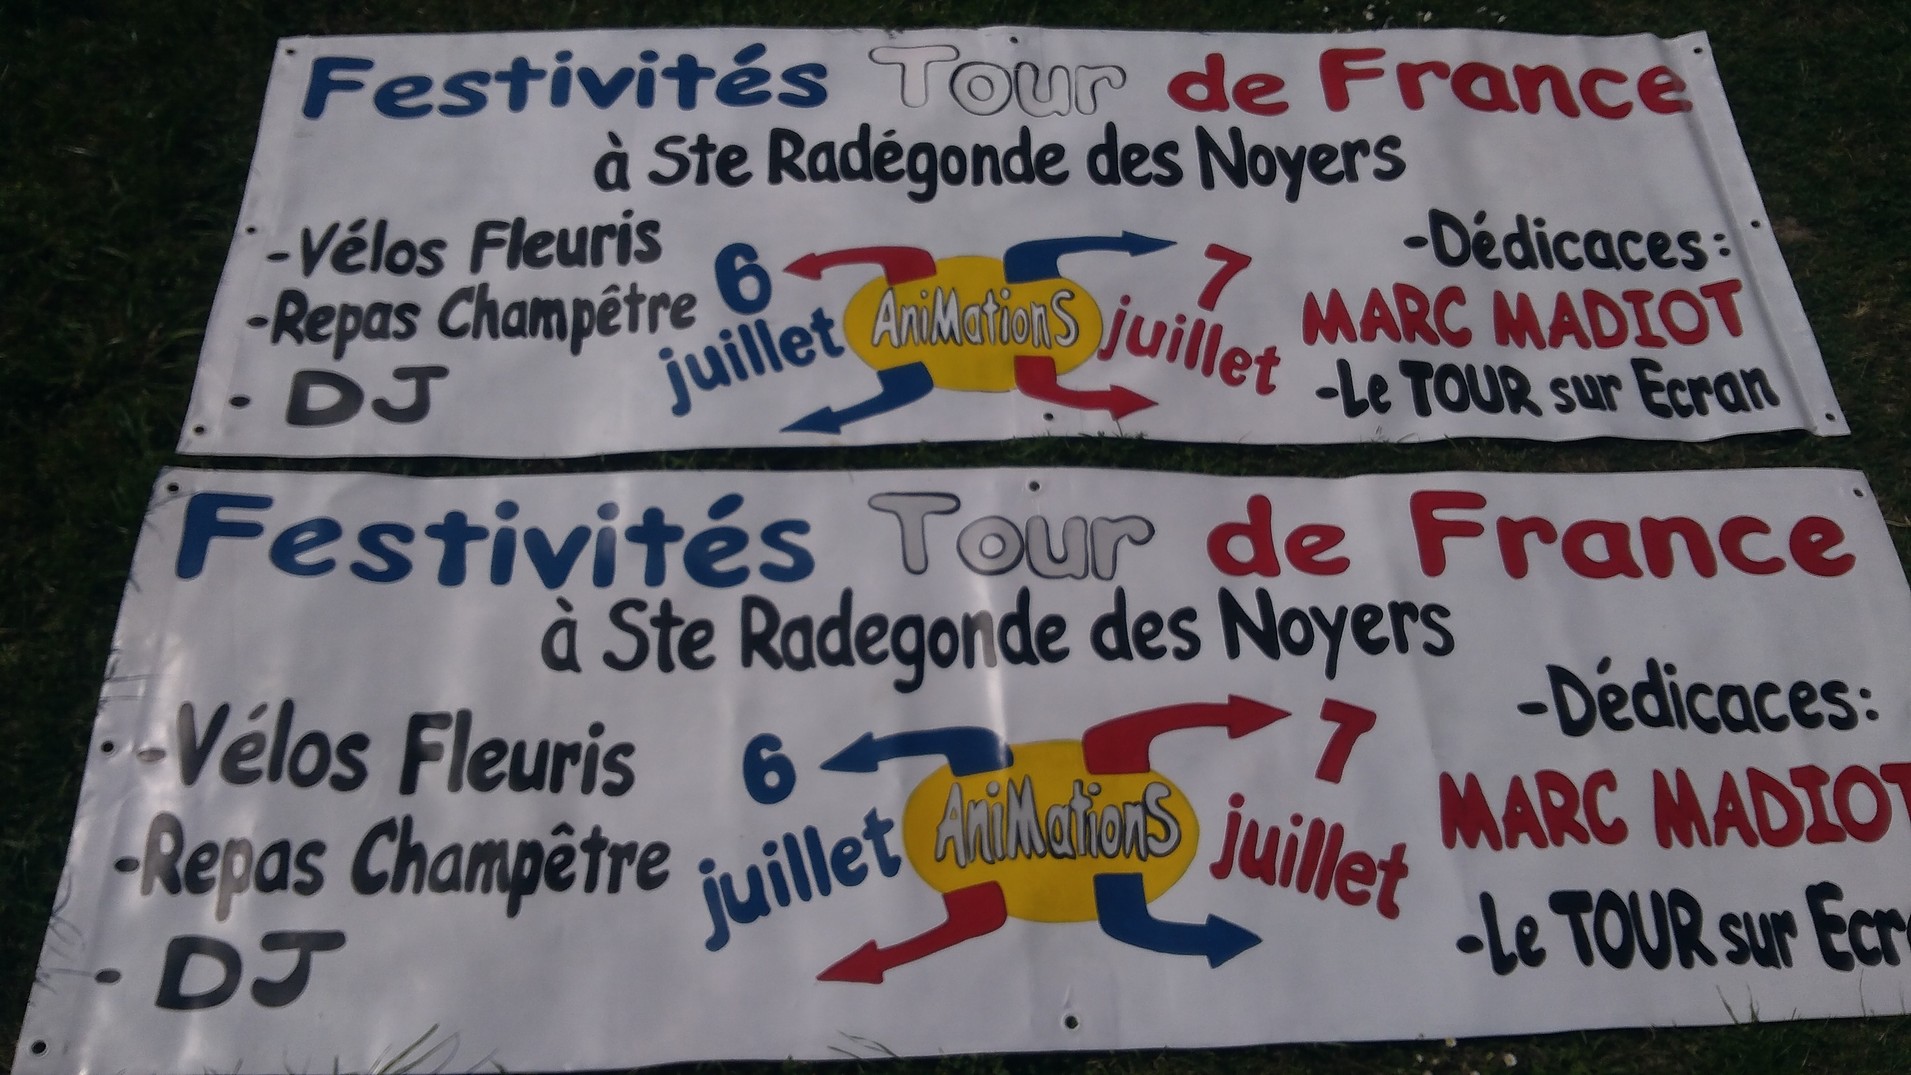 Festivités Tour de France
à Ste Radégonde des Noyers
-Vélos Fleuris
-Repas Champêtre
- DJ
6 juillet
AniMationS
7 juillet
-Dédicaces:
MARC MADIOT
-Le TOUR sur Ecran
Festivités Tour de France
à Ste Radegonde des Noyers
-Vélos Fleuris
-Repas Champêtre
- DJ
6 juillet
AniMationS
7 juillet
-Dédicaces:
MARC MADIOT
-Le TOUR sur Ecr